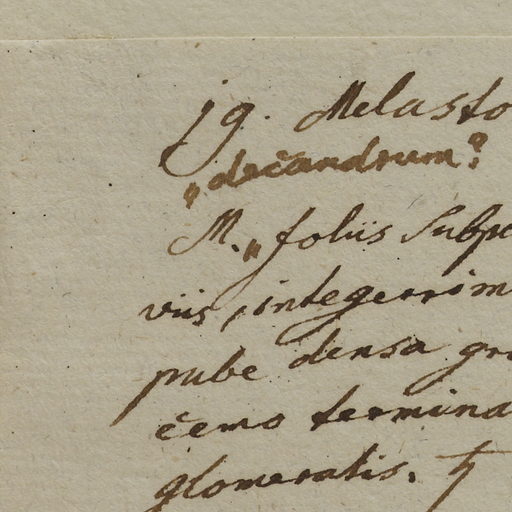 19. Melasto
„decandrum?
M. „foliis subpe
viis, integerrim
pube densa gra
cemo termina
glomeratis. ♄